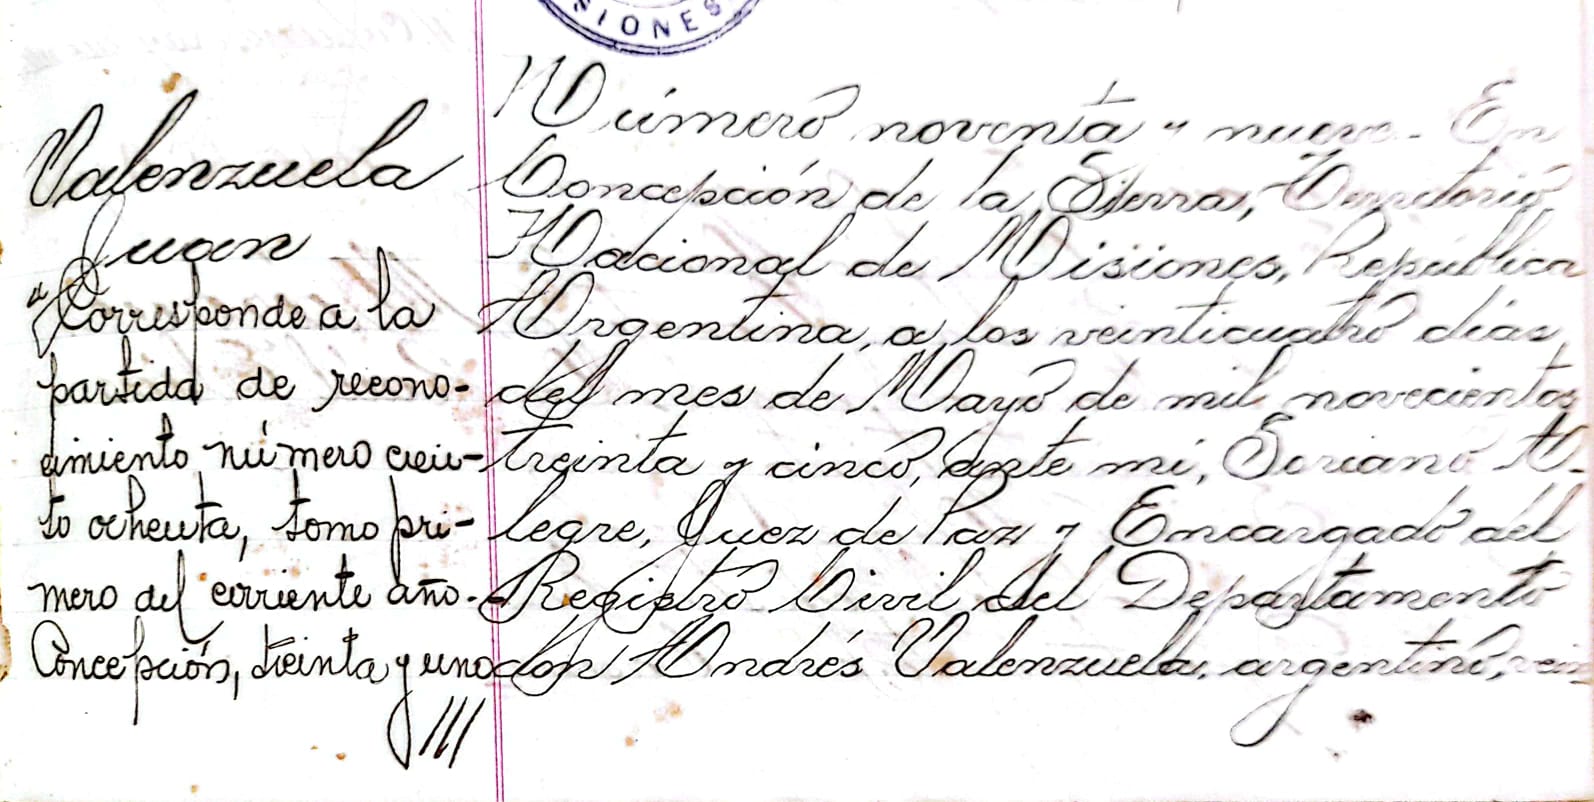 SIONES
Valenzuela
Juan
"Corresponde a la
partida de recono-
cimiento número cien-
to ochenta, tomo pri-
mero del corriente año.-
Concepción, treinta y uno
///
Número noventa y nueve. En
Concepción de la Sierra, Territorio
Nacional de Misiones, República
Argentina, a los veinticuatro días
del mes de Mayo de mil novecientos
treinta y cinco, ante mí, Soriano A-
legre, Juez de Paz y Encargado del
Registro Civil del Departamento
don Andrés Valenzuela, argentino, vein